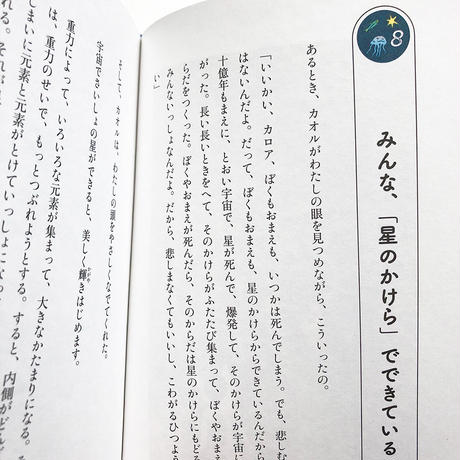 8
みんな、「星のかけら」でできている
あるとき、カオルがわたしの眼を見つめながら、こういったの。
「いいかい、カロア、ぼくもおまえも、いつかは死んでしまう。でも、悲しむ
はないんだよ。だって、ぼくもおまえも、星のかけらからできているんだから
十億年もまえに、とおい宇宙で、星が死んで、爆発して、そのかけらが宇宙に
がった。長い長いときをへて、そのかけらがふたたび集まって、ぼくやおまえ
らだをつくった。ぼくやおまえが死んだら、そのからだは星のかけらにもどる
みんないっしょなんだよ。だから、悲しまなくてもいいし、こわがるひつよう
い」
そして、カオルは、わたしの頭をやさしくなでてくれた。
宇宙でさいしょの星ができると、美しく輝きはじめます。
かがや
重力によって、いろいろな元素が集まって、大きなかたまりになる。
は、重力のせいで、もっとつぶれようとする。すると、内側がどん
しまいに元素と元素がとけていっしょになっ
れる。それが